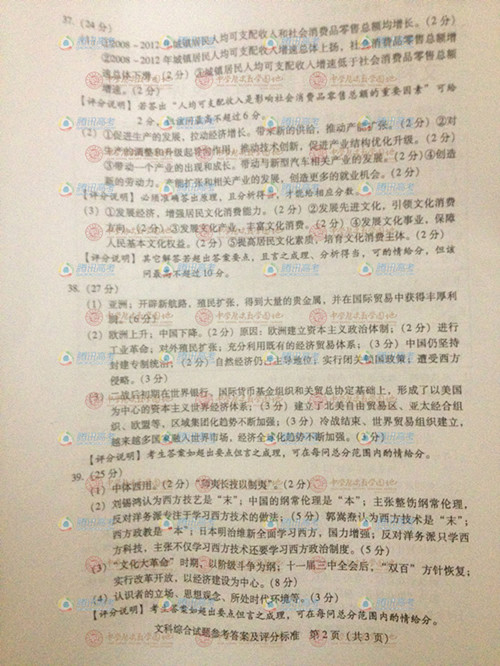 37. (24分)
(1) ①2008－2012年城镇居民人均可支配收入和社会消费品零售总额均增长。(2分)
②2008－2012年城镇居民人均可支配收入增速总体上扬，社会消费品零售总额增
速总体下滑。(2分) ③城镇居民人均可支配收入增速低于社会消费品零售总额增
【评分说明】若答出“人均可支配收入是影响社会消费品零售总额的重要因素”可给
2分，但该问最高不超过6分。
(2) ①促进生产的发展，拉动经济增长。带来新的供给，推动产品扩张。(2分) ②对
生产的调整和升级起导向作用，推动技术创新，促进产业结构优化升级。(2分)
③带动一个产业的出现和成长。带动与新型汽车相关产业的发展。(2分) ④创造
新的劳动力。产能扩张和相关产业的发展，创造更多的就业机会。(2分)
【评分说明】必须准确答出原理，且分析得当，才能给相应分数。
(3) ①发展经济，增强居民文化消费能力。(2分) ②发展先进文化，引领文化消费
方向。(2分) ③发展文化产业，丰富文化消费。(2分) ④发展文化事业，保障
人民基本文化权益。(2分) ⑤提高居民文化素质，培育文化消费主体。(2分)
【评分说明】其它解答若超出答案要点，且言之成理，分析得当，可酌情给分，但该
问最高不超过10分。
38. (27分)
(1) 亚洲；开辟新航路，殖民扩张，得到大量的贵金属，并在国际贸易中获得丰厚利
润。(6分)
(2) 欧洲上升；中国下降。(2分) 原因：欧洲建立资本主义政治体制；(2分) 进行
工业革命；对外殖民扩张；充分利用既有的经济贸易体系；(3分) 中国仍坚持
封建专制统治；(2分) 自然经济仍占主导地位；实行闭关锁国政策；遭受西方
侵略。(3分)
(3) 二战后初期在世界银行、国际货币基金组织和关贸总协定基础上，形成了以美国
为中心的资本主义世界经济体系；(3分) 建立了北美自由贸易区、亚太经合组
织、欧盟等，区域集团化趋势不断加强；(3分) 冷战结束、世界贸易组织建立，
越来越多国家融入世界市场，经济全球化趋势不断加强。(3分)
【评分说明】考生答案如超出要点但言之成理，可在每问总分范围内酌情给分。
39. (25分)
(1) 中体西用。(2分) “师夷长技以制夷”。(2分)
(2) 刘锡鸿认为西方技艺是“末”；中国的纲常伦理是“本”；主张整饬纲常伦理，
反对洋务派专注于学习西方技术的做法；(5分) 郭嵩焘认为西方技术是“末”；
西方政教是“本”；日本明治维新全面学习西方，国力增强；反对洋务派只学西
方科技，主张不仅学习西方技术还要学习西方政治制度。(5分)
(3) “文化大革命”时期，以阶级斗争为纲；十一届三中全会后，“双百”方针恢复；
实行改革开放，以经济建设为中心。(8分)
(4) 认识者的立场、思想观念、所处时代环境等。(3分)
【评分说明】考生答案如超出要点但言之成理，可在每问总分范围内酌情给分。
文科综合试题参考答案及评分标准 第2页（共3页）
腾讯高考